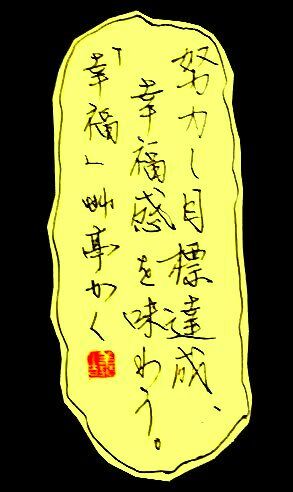 努力し目標達成、
幸福感を味わう。
「幸福」艸亭かく